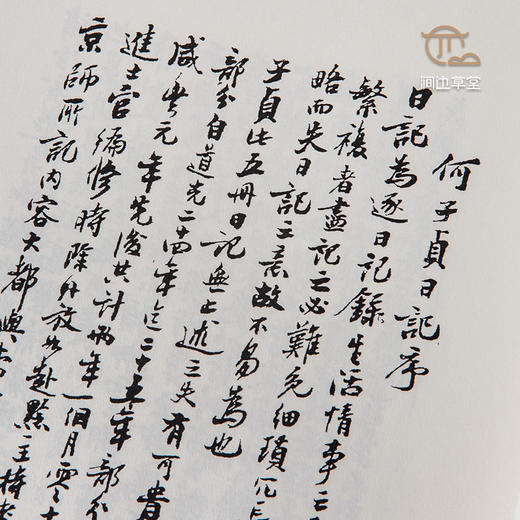 涧边草堂
何子貞日記序
日記為逐日記錄生活情事之
繁複者盡記之必難免細瑣冗長
略而失日記之意故不易為也
子貞此五冊日記無上述之失有可貴
部分自道光二十四年迄二十五年部分
咸豐元年先後共計兩年一個月零十
進士官編修時除外放如赴黔主持考
京師所記內容大都與